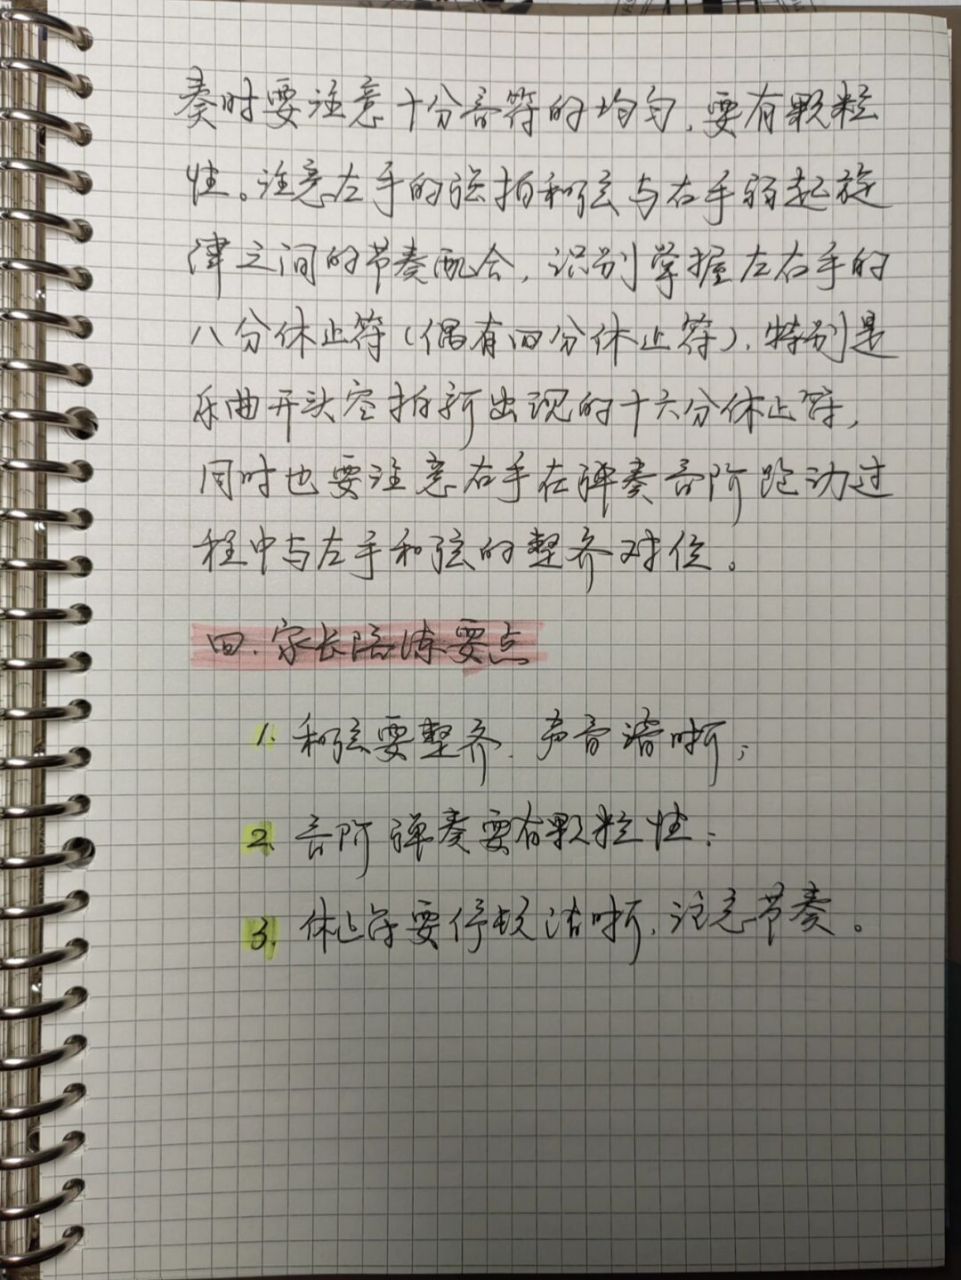 奏时要注意十分音符的均匀,要有颗粒
性。注意左手的强拍和弦与右手弱起旋
律之间的节奏配合,识别掌握左右手的
八分休止符(偶有四分休止符),特别是
乐曲开头空拍所出现的十六分休止符,
同时也要注意右手在弹奏音阶跑动过
程中与左手和弦的整齐对位。
四.家长陪练要点
1. 和弦要整齐.声音清晰;
2. 音阶弹奏要有颗粒性;
3. 休止符要停顿清晰,注意节奏。